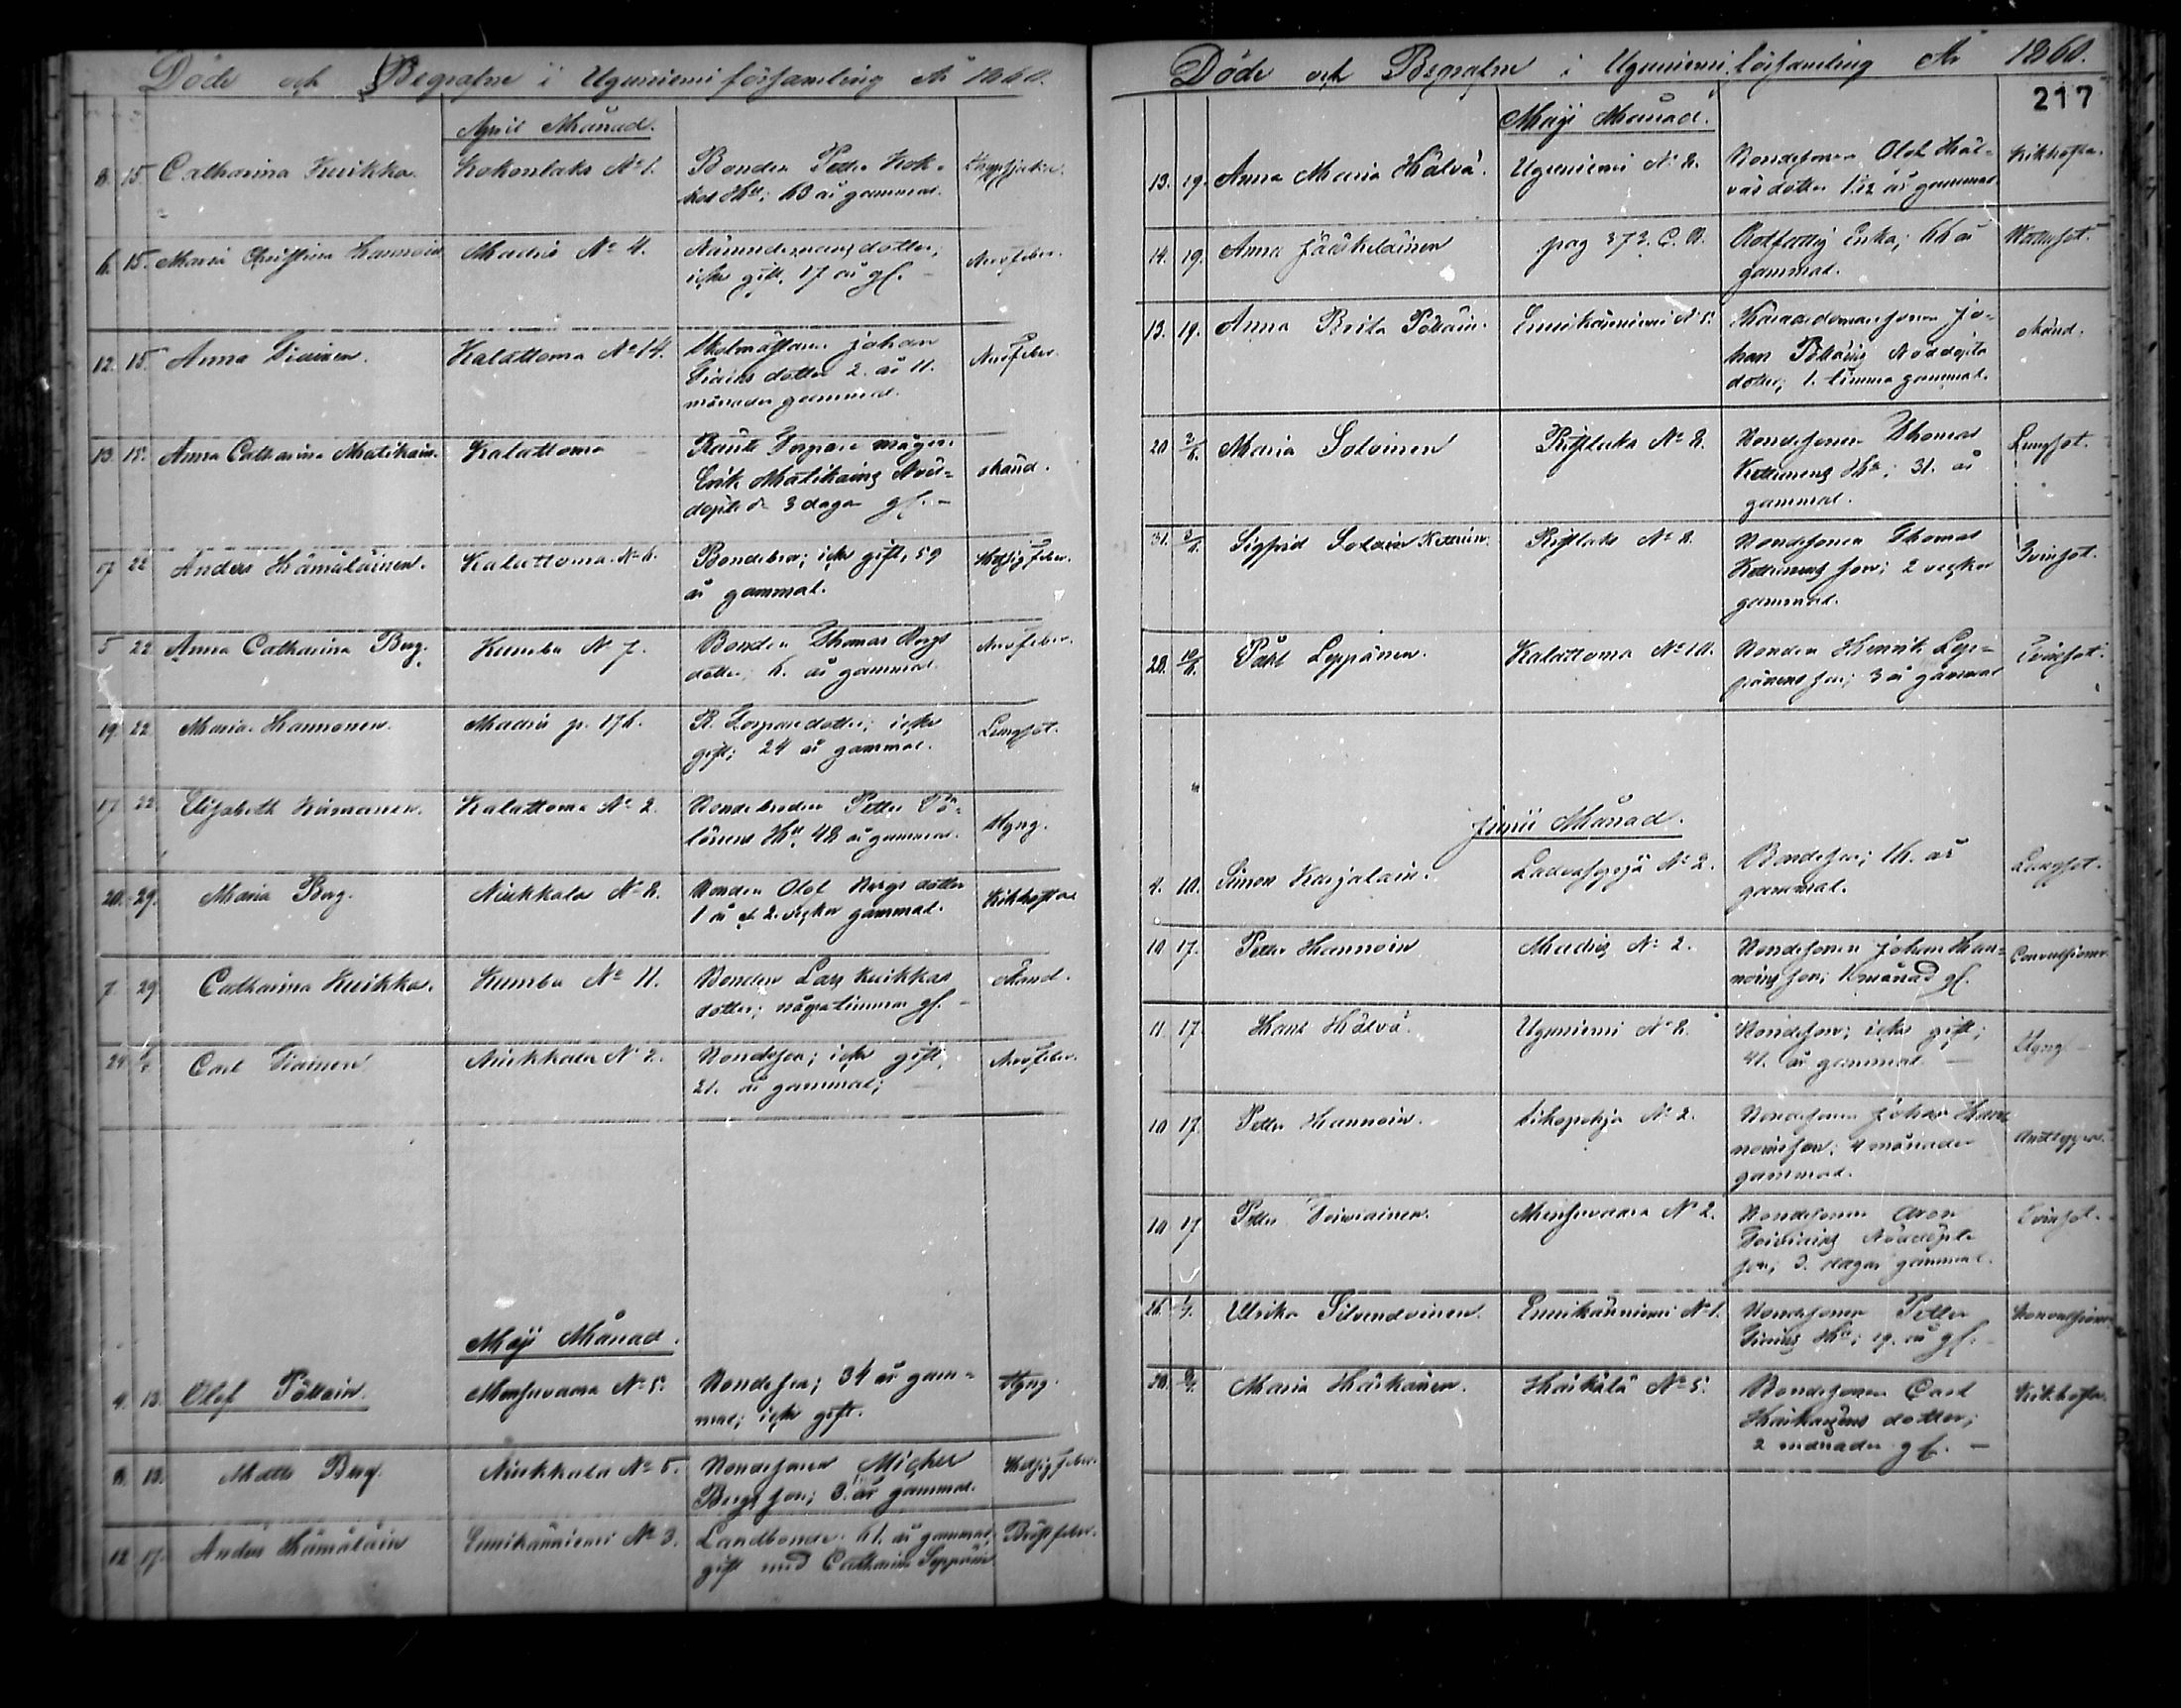 Döde och Begrafne i Uguniemi församling År 1860.
April Månad.
8. 15. Catharina Kuikka. Kokonlaks No 1. Bonden Petter Kok-
kos Hu; 63 år gammal.
6. 15. Maria Christina Hannoin Madis No 4. Nämndemans dotter,
icke gift, 17 år gl. Nervfeber.
12. 15. Anna Tiainen. Kalattoma No 14. Skolmästaren Johan
Tiains dotter 2. år 11.
månader gammal. Nervfeber.
13. 15. Anna Catharina Matikain. Kalattoma
Erik Matikains Nöd-
döpte d. 3 dagar gl. – okänd.
17 22 Anders Hämäläinen. Kalattoma No 6. Bondebror; icke gift, 59
år gammal. Hetsig feber.
5 22 Anna Catharina Berg. Kumbu N 7. Bonden Thomas Bergs
dotter; 6. år gammal. Nervfeber.
19. 22. Maria Hannonen. Madis p. 176. R. Torpare dotter; icke
gift; 24 år gammal. Lungsot.
17. 22. Elisabeth Hämänen. Kalattoma No 2. Bondebroder Petter Pö-
lönens Hu. 48 år gammal. Styng.
20. 29. Maria Berg. Niukkala No 8. Bonden Olof Bergs dotter
1 år o 2. veckor gammal. Kikhosta
7. 29. Catharina Kuikka. Kumbu No 11. Bonden Lars Kuikkas
dotter; några timmar gl. – okänd.
24 Carl Tiainen Niukkala No 2. Bondeson; icke gift,
21. år gammal; Nervfeber.
Maji Månad.
4. 13. Olof Pöllain. Mensuvaara No 5. Bondeson; 34 år gam-
mal; icke gift. Styng.
8. 13. Matts Berg. Niukkala No 5. Bondesonen Michel
Bergs son; 3. år gammal. Hetsig feber.
12 17. Anders Hämäläin Ennikänniemi No 3. Landbonde. 61. år gammal,
gift med Catharina Leppänin Bröstfeber.
Döde och Begrafne i Uguniemi församling År 1860.
217
Maji Månad.
13. 19. Anna Maria Hälvä. Uguniemi No 8. Bondesonen Olof Häl-
väs dotter 1 1/12 år gammal. Kikhosta.
14. 19. Anna Jääskeläinen pag 373. Rotfattig Enka; 66 år
gammal. Vattusot.
13. 19. Anna Brita Pöllain. Ennikänniemi No 5. Jo-
han Pöllains Nöddöpta
dotter, 1. timma gammal. okänd.
20 3/6. Maria Soloinen Ristlaks No 8. Bondesonen Thomas
Kettunens Hu; 31. år
gammal. Lungsot.
31. 3/6. Sigfrid Kettuin. Ristlaks No 8. Bondesonen Thomas
Kettunens son; 2 veckor
gammal. Tvinsot.
28. 10/6. Påhl Leppänen. Kalattoma No 10. Bonden Henrik Lep-
pänens son; 3 år gammal Tvinsot.
Junii Månad.
4. 10. Simon Karjalain. No 2. Bondeson; 16. år
gammal. Lungsot.
10 17. Petter Hannoin Madis No 2. Bondesonen Johan Han-
noins son; 1 månad gl. Convulsioner.
11. 17. Hans Hälvä. Uguniemi No 8. Bondeson; icke gift;
41. år gammal. – Styng –
10 17. Petter Hannoin. Sikopohja No 2. Bondesonen Johan Han
noins son; 4 månader
gammal. Andtäppa.
10 17 Petter Toiviainen. Mensuvaara No 2. Bondesonen Aron
Toiviains Nöddöpte
son; 3. dagar gammal. Tvinsot.
26. 1/7. Ulrika Silvendoinen. Ennikänniemi No 1. Bondesonen Petter
Tiains Hu; 19. år gl. – Konvulsioner.
Maria Härkänen. Härkälä No 5. Bondesonen Carl
Härkänens dotter;
2 månader gl. – Kikhosta.